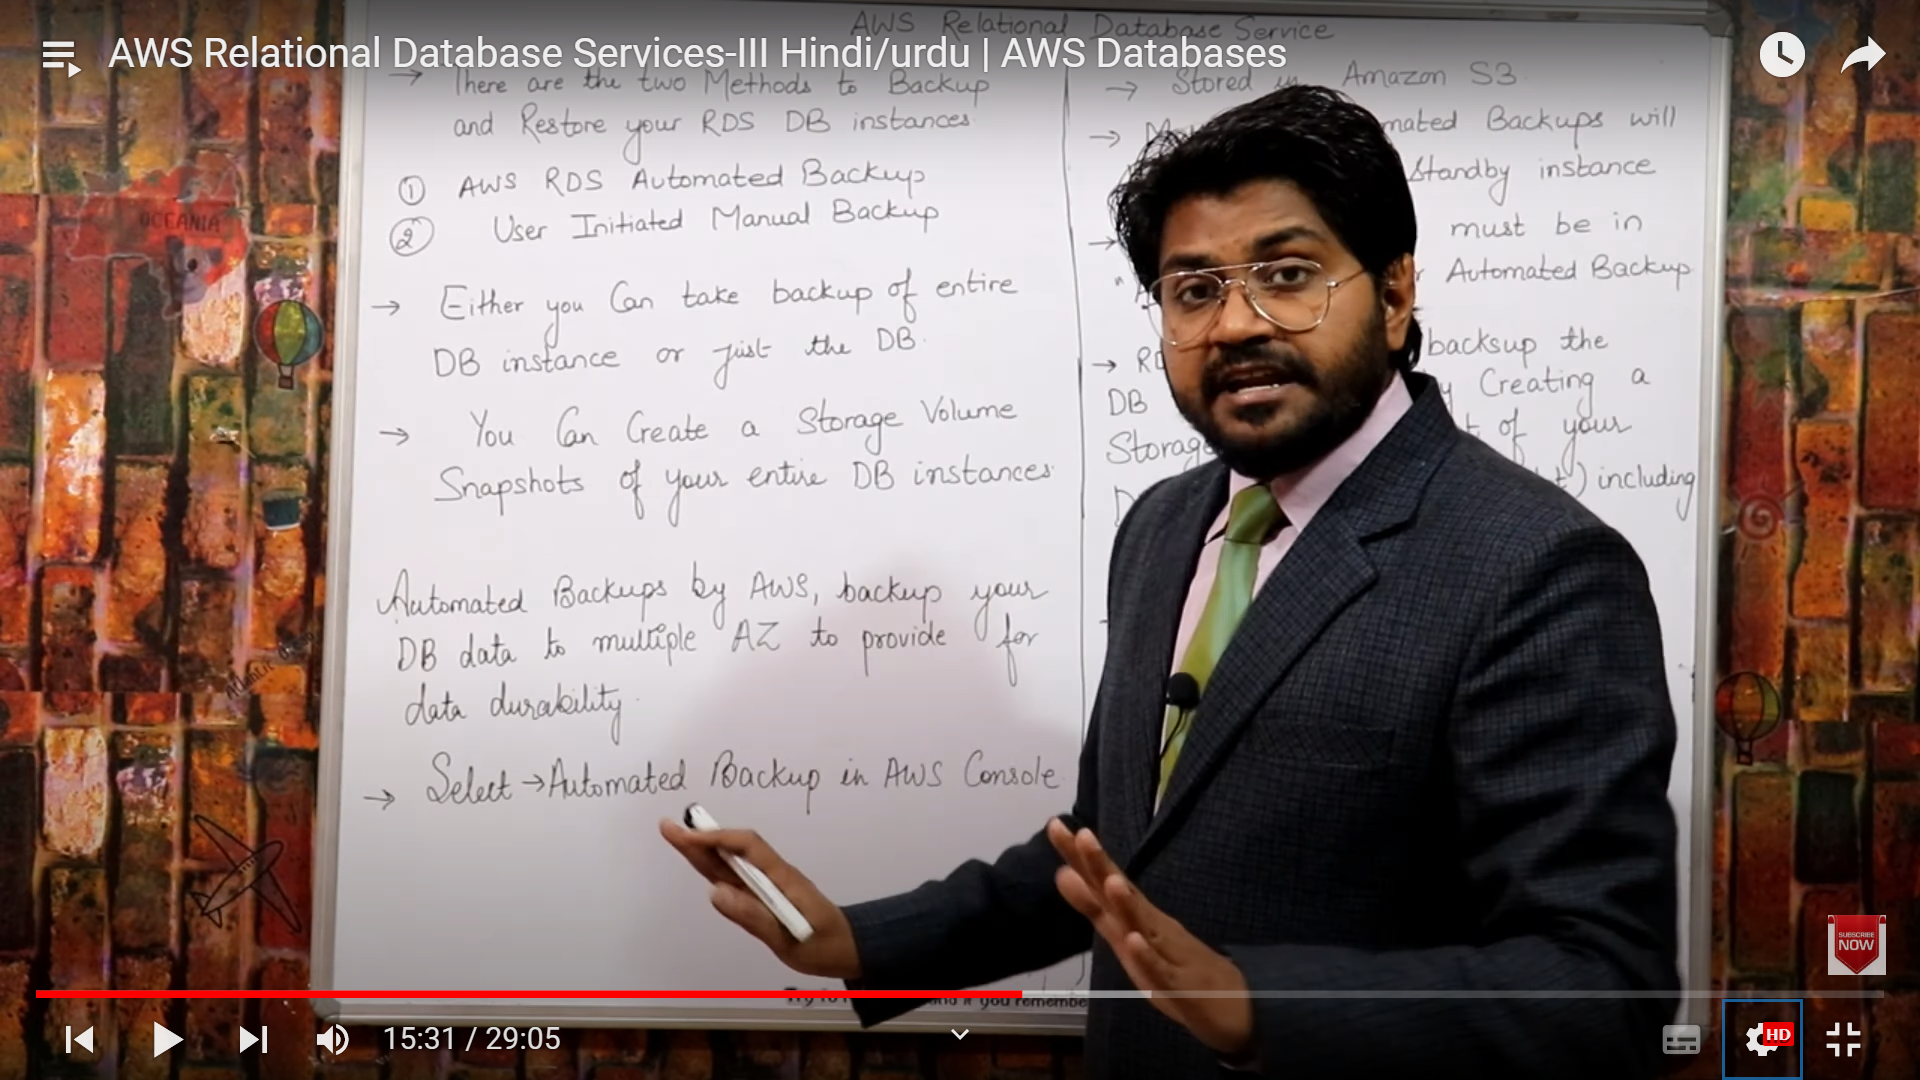 AWS Relational Database Service
AWS Relational Database Services-III Hindi/urdu | AWS Databases
→ There are the two Methods to Backup
and Restore your RDS DB instances
① AWS RDS Automated Backup
② User Initiated Manual Backup
→ Either you Can take backup of entire
DB instance or just the DB.
→ You Can Create a Storage Volume
Snapshots of your entire DB instances
Automated Backups by AWS, backup your
DB data to multiple AZ to provide for
data durability.
→ Select → Automated Backup in AWS Console
→ Stored in Amazon S3
→ Backups will
Standby instance
→ must be in
Automated Backup
→ backsup the
DB Creating a
Storage of your
including
OCEANIA
if you
SUBSCRIBE
NOW
15:31 / 29:05
HD